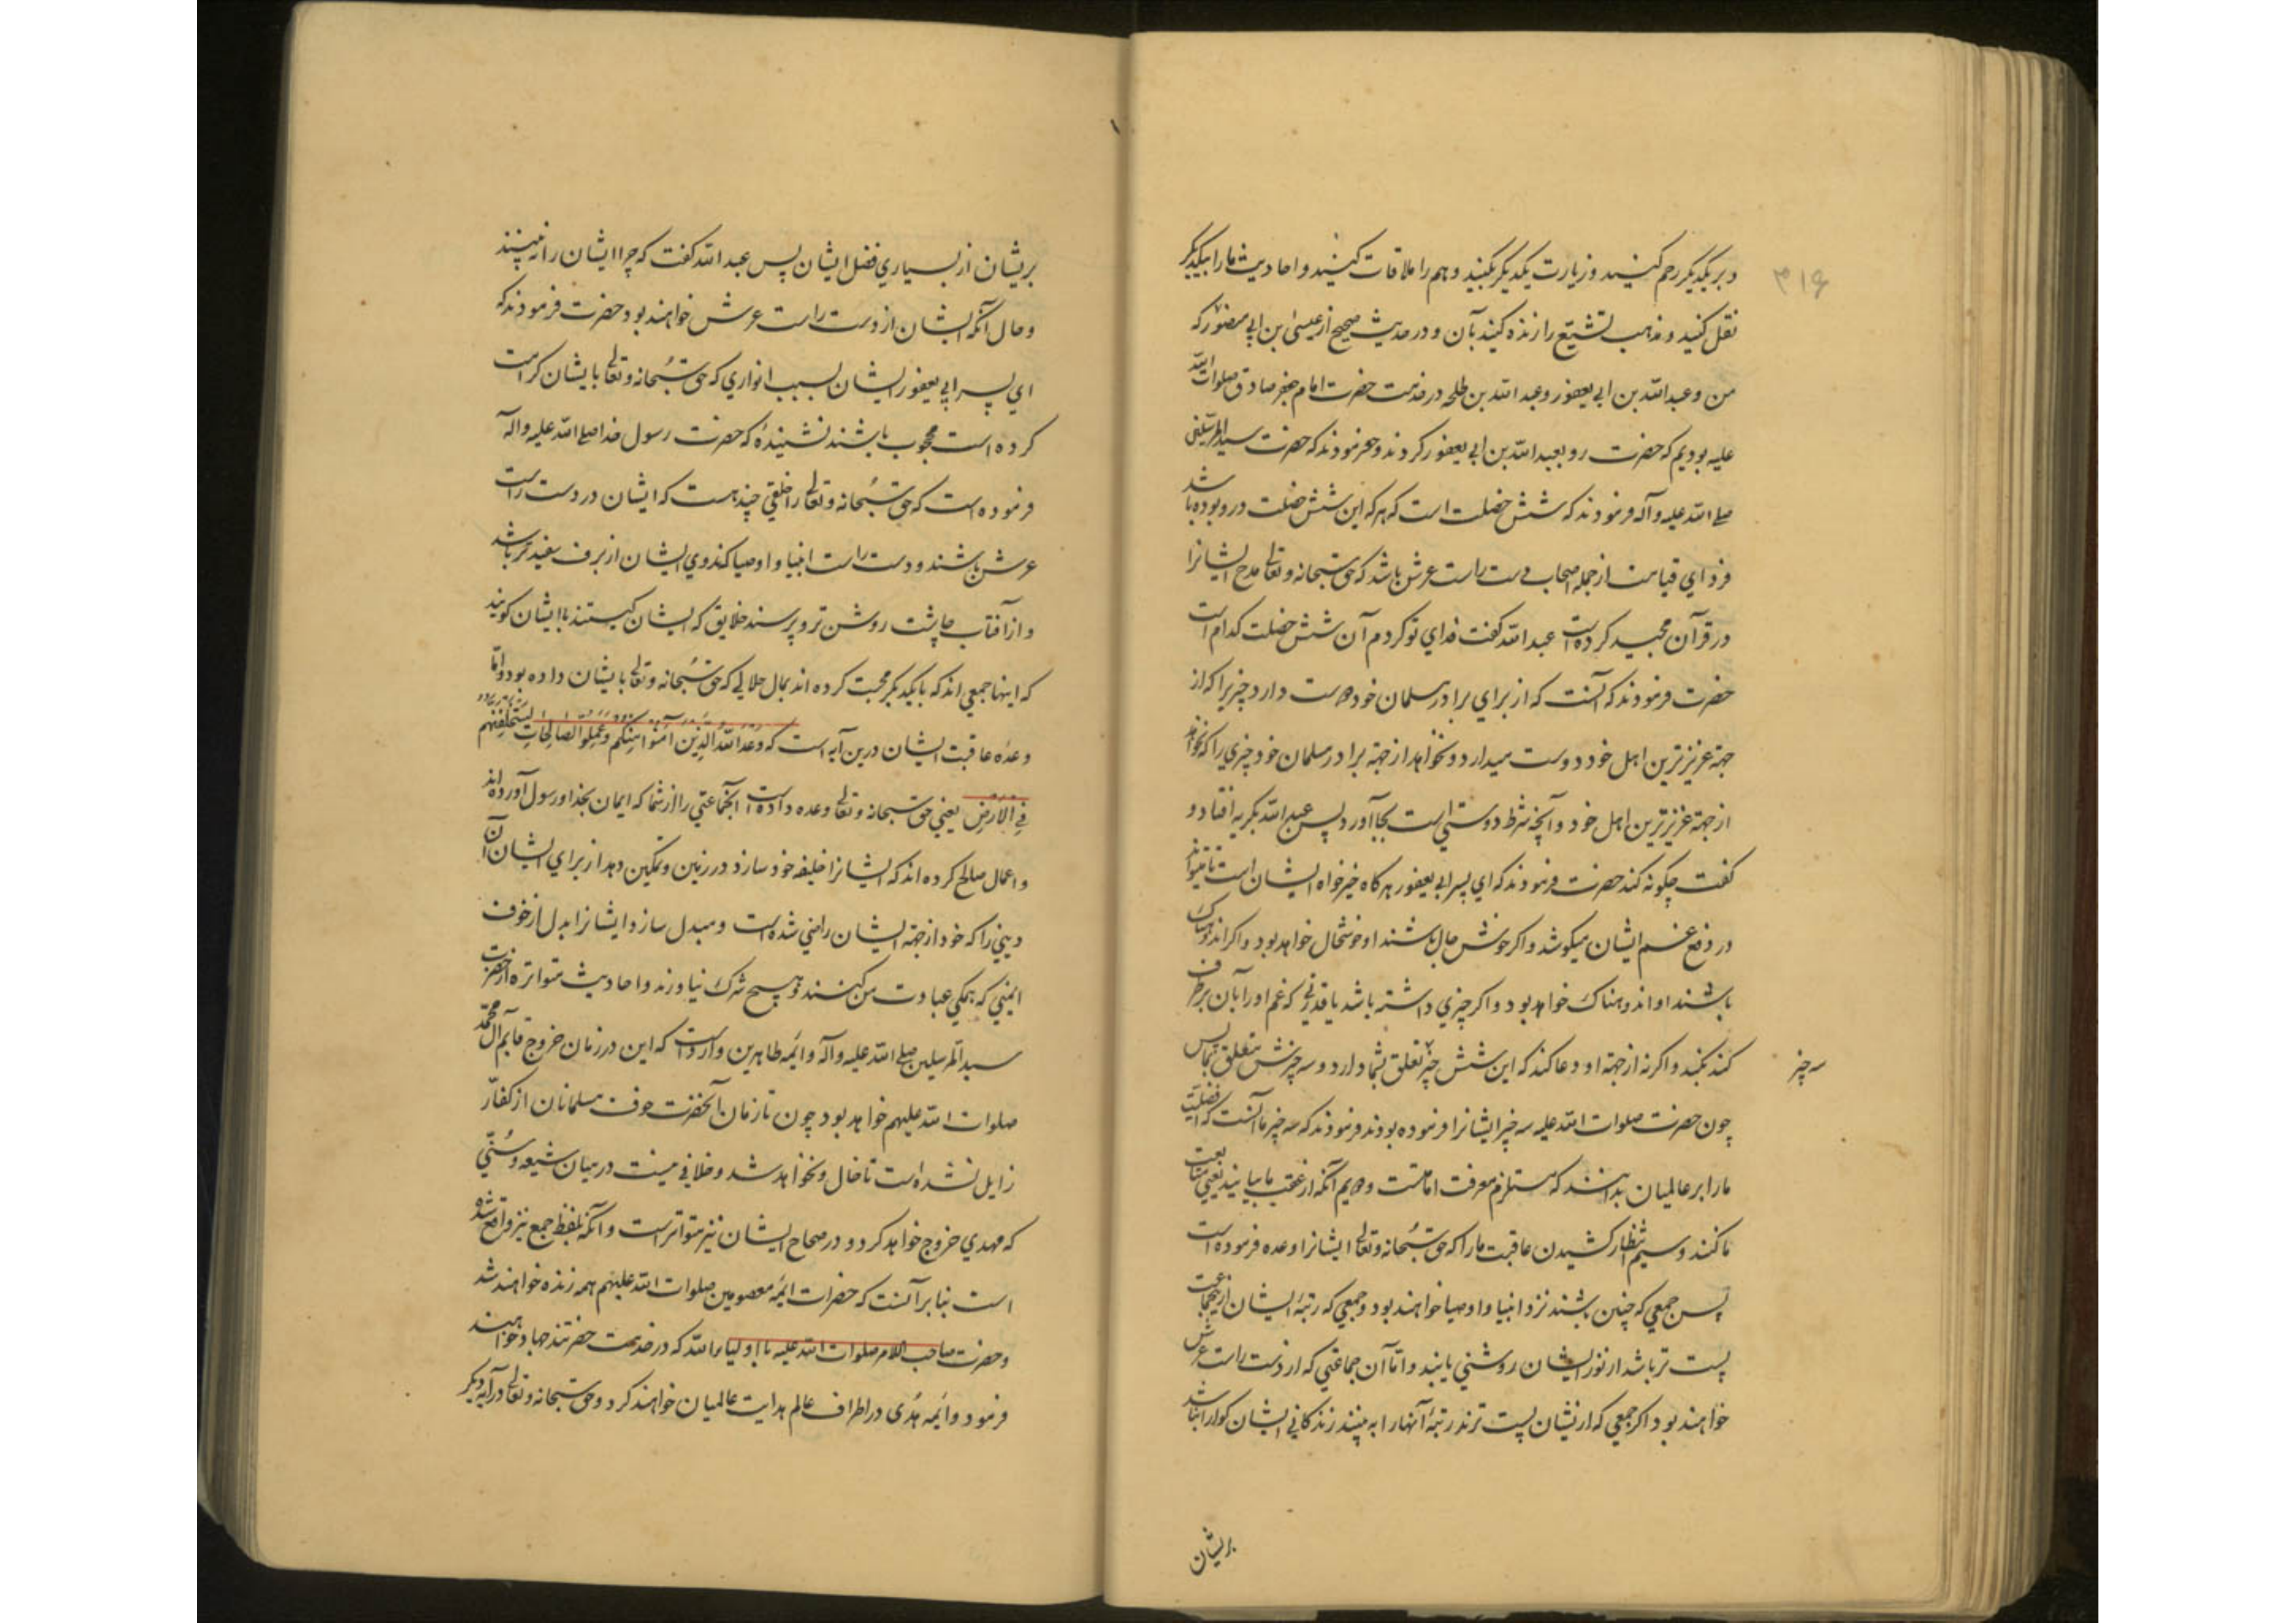 ۳۱۶
و بر یکدیگر رحم کنید و زیارت یکدیگر بکنید و هم را ملاقات کنید و احادیث ما را بیکدیگر
نقل کنید و مذهب تشیّع را زنده کنید بآن و در حدیث صحیح از عیسی بن ابی منصور که
من و عبد الله بن ابی یعفور و عبد الله بن طلحه در خدمت حضرت امام جعفر صادق صلوات الله
علیه بودیم که حضرت رو بعبد الله بن ابی یعفور کردند و فرمودند که حضرت سید المرسلین
صلی الله علیه و آله فرمودند که شش خصلت است که هر که این شش خصلت در و بوده باشد
فردای قیامت از جمله اصحاب دست راست عرش باشد که حق سبحانه و تعالی مدح ایشانرا
در قرآن مجید کرده است عبد الله گفت فدای تو کردم آن شش خصلت کدام است
حضرت فرمودند که آنست که از برای برادر مسلمان خود دوست دارد چیزیرا که از
جهة عزیزترین اهل خود دوست میدارد و نخواهد از جهة برادر مسلمان خود چیزی را که نخواهد
از جهة عزیزترین اهل خود و آنچه شرط دوستی است بجا آورد پس عبد الله بگریه افتاد و
گفت چگونه کند حضرت فرمودند که ای پسر ابی یعفور هر گاه خیرخواه ایشان است تا میتواند
در دفع غم ایشان میکوشد و اگر خوش حال باشند او خوشحال خواهد بود و اگر اندوهناک
باشند او اندوهناک خواهد بود و اگر چیزی داشته باشد یا قدرتی که غم او را بآن برطرف
کند بکند و اگر نه از جهة او دعا کند که این شش چیز تعلق بشما دارد و سه چیزش متعلق بماست پس
سه چیز
چون حضرت صلوات الله علیه سه چیز ایشانرا فرموده بودند فرمودند که سه چیز ما آنست که افضلیت
ما را بر عالمیان بدانند که مستلزم معرفت امامتست و دویم آنکه از عقب ما بیایند یعنی متابعت
ما کنند و سیم انتظار کشیدن عاقبت ما را که حق سبحانه و تعالی ایشانرا وعده فرموده است
پس جمعی که چنین باشند نزد انبیا و اوصیا خواهند بود و جمعی که رتبه ایشان از این جماعت
پست تر باشد از نور ایشان روشنی یابند و امّا آن جماعتی که از دست راست عرش
خواهند بود اگر جمعی که از ایشان پست ترند رتبهٔ آنها را به بینند زندگانی ایشان گوارا نباشد
بریشان
بریشان از بسیاری فضل ایشان پس عبد الله گفت که چرا ایشان را نه بینند
و حال آنکه ایشان از دست راست عرش خواهند بود حضرت فرمودند که
ای پسر ابی یعفور ایشان بسبب انواری که حق سبحانه و تعالی بایشان کرامت
کرده است محجوب باشند نشنیدهٔ که حضرت رسول خدا صلی الله علیه و آله
فرموده است که حق سبحانه و تعالی را خلقی چند هست که ایشان در دست راست
عرش باشند و دست راست انبیا و اوصیا که روی ایشان از برف سفیدتر باشد
و از آفتاب چاشت روشن تر و پرسند خلایق که ایشان کیستند با ایشان گویند
که اینها جمعی اند که با یکدیگر محبت کرده اند بمال حلالی که حق سبحانه و تعالی بایشان داده بود و امّا
وعدهٔ عاقبت ایشان درین آیه است که وَعَدَ اللهُ الَّذِینَ آمَنُوا مِنْکُمْ وَعَمِلُوا الصَّالِحَاتِ لَیَسْتَخْلِفَنَّهُمْ
فِی الْاَرْضِ یعنی حق سبحانه و تعالی وعده داده است آنجماعتی را از شما که ایمان بخدا و رسول آورده اند
و اعمال صالح کرده اند که ایشانرا خلیفه خود سازد در زمین و تمکین دهد از برای ایشان آن
دینی را که خود از جهة ایشان راضی شده است و مبدل سازد ایشانرا بدل از خوف
ایمنی که همگی عبادت من کنند و هیچ شرک نیاورند و احادیث متواتره از حضرت
سید المرسلین صلی الله علیه و آله و ائمه طاهرین وارد است که این در زمان خروج قایم آل محمّد
صلوات الله علیهم خواهد بود چون تا زمان آنحضرت خوف مسلمانان از کفّار
زایل نشده است تا حال و نخواهد شد و خلافی نیست در میان شیعه و سُنّی
که مهدی خروج خواهد کرد و در صحاح ایشان نیز متواتر است و آنکه بلفظ جمع نیز واقع شده
است بنا بر آنست که حضرات ائمه معصومین صلوات الله علیهم همه زنده خواهند شد
و حضرت صاحب الامر صلوات الله علیه با اولیاء الله که در خدمت حضرتند جهاد خواهند
فرمود و ائمه هُدی در اطراف عالم هدایت عالمیان خواهند کرد و حق سبحانه و تعالی در آیه دیگر